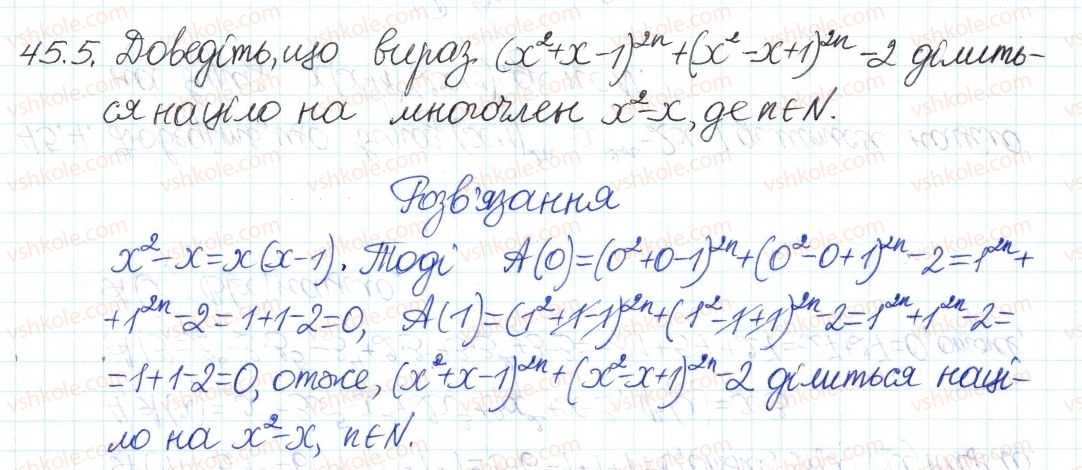 45.5. Доведіть, що вираз (x²+x-1)²ⁿ+(x²-x+1)²ⁿ-2 ділить-
ся націло на многочлен x²-x, де n∈N.
Розв'язання
x²-x=x(x-1). Тоді A(0)=(0²+0-1)²ⁿ+(0²-0+1)²ⁿ-2=1²ⁿ+
+1²ⁿ-2=1+1-2=0, A(1)=(1²+1-1)²ⁿ+(1²-1+1)²ⁿ-2=1²ⁿ+1²ⁿ-2=
=1+1-2=0, отже, (x²+x-1)²ⁿ+(x²-x+1)²ⁿ-2 ділиться наці-
ло на x²-x, n∈N.